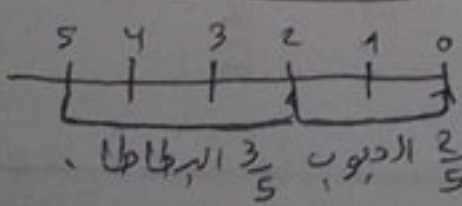 5 4 3 2 1 0
2/5 الحبوب 3/5 البطاطا.